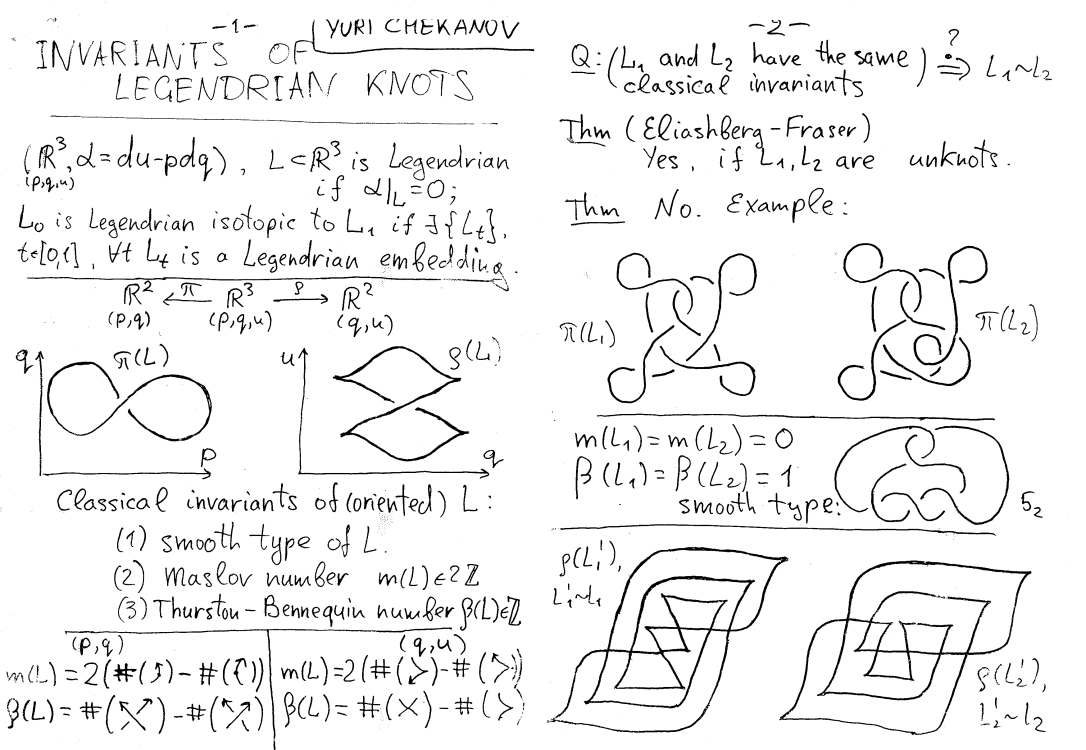 -1-
YURI CHEKANOV
INVARIANTS OF
LEGENDRIAN KNOTS
(ℝ³, α=du-pdq), L⊂ℝ³ is Legendrian
(p,q,u)
if α|_L=0;
L₀ is Legendrian isotopic to L₁ if ∃{L_t},
t∈[0,1], ∀t L_t is a Legendrian embedding.
ℝ² ←π ℝ³ ρ→ ℝ²
(p,q) (p,q,u) (q,u)
q π(L) u ρ(L)
p q
Classical invariants of (oriented) L:
(1) smooth type of L.
(2) Maslov number m(L)∈2ℤ
(3) Thurston-Bennequin number β(L)∈ℤ
(p,q) (q,u)
m(L)=2(#( )-#( )) m(L)=2(#( )-#( ))
β(L)=#( )-#( ) β(L)=#( )-#( )
-2-
Q: (L₁ and L₂ have the same classical invariants) ?⇒ L₁~L₂
Thm (Eliashberg-Fraser)
Yes, if L₁,L₂ are unknots.
Thm No. Example:
π(L₁) π(L₂)
m(L₁)=m(L₂)=0
β(L₁)=β(L₂)=1
smooth type: 5₂
ρ(L₁'),
L₁'~L₁
ρ(L₂'),
L₂'~L₂